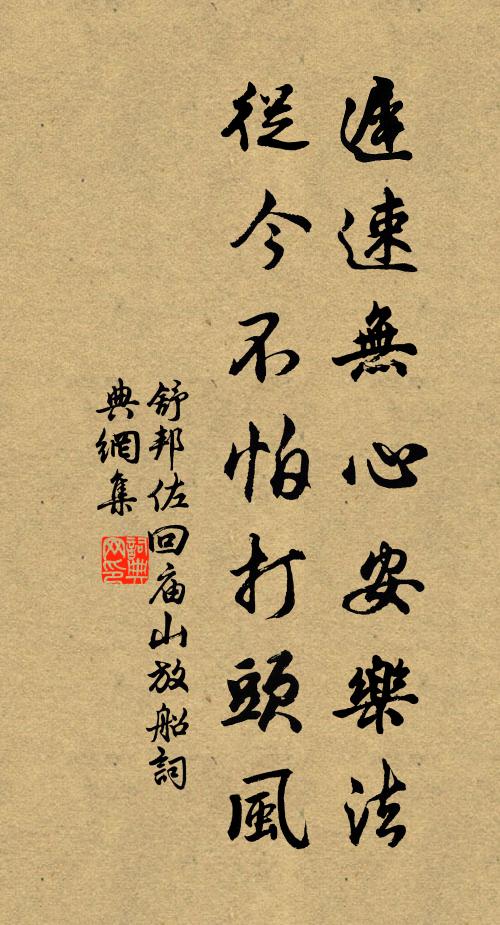 遲速無心安樂法
從今不怕打頭風
舒邦佐回庙山放船詞
典網集
詞典
网印